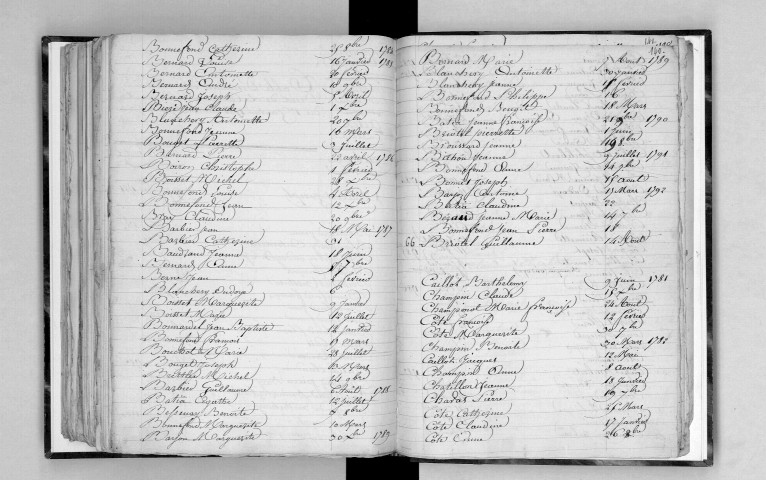 Bonnefond Catherine 28 8bre 1784
Bernard Louise 16 Janvier 1785
Bernard Antoinette 20 fevrier
Bernard André 15 9bre
Bernard Joseph 2 Aout
Bizé Jean Claude 1 Xbre
Blanchery Antoinette 20 7bre
Bonnefond Jeanne 16 mars
Bouget Pierrette 3 Juillet
Bernard Pierre 22 avril 1786
Boiron Christophe 1 fevrier
Boisset Michel
Bonnefond Louise 4 Avril
Bonnefond Jean 12 Xbre
Bray Claudine 20 9bre
Barbier Jean 18 Mai 1787
Barbier Catherine 31
Baudrand Jeanne 18 Juin
Bernard Anne 7bre
Jean fevrier
Blanchery 6
Bosset Marguerite 9 Janvier
Bosset Marie 12 Juillet
Bonnardel Jean Baptiste 14 Janvier
Bonnefond francois 11 mars
Bouchot Marie 28 Juillet
Bouget Joseph 10 Mars
Michel 24 9bre
Barbier Guillaume 6 Aout 1788
Batia 12 Juillet
Bessenay Benoite 7 8bre
Bonnefond Marguerite 10 Mars
Marguerite 30 Xbre 1789
140
Bernard Marie 7 Aout 1789
Blanchery Antoinette 30 Janvier
Blanchery Jeanne 18 fevrier
Bonnefond Philippe 16
Bonnefond Benoit 18 Mars
Jeanne françoise 21 9bre 1790
Briotet pierrette 1 Juin
Broussard Jeanne 19 8bre
Bithon Jeanne 9 Juillet 1791
Bonnefond Anne 14 9bre
Bonnet Joseph 15 aout
Bayon Antoine 11 Mars 1792
Batia Claudine 22
Bézard Jeanne Marie 14 7bre
Bonnefond Jean Pierre 18
66 Briotet Guillaume 14 Aout
Caillot Barthelemy 9 Juin 1781
Champin Claude 18 Xbre
Championot Marie françoise 24 Aout
Côte francois 12 fevrier
Côte Marguerite 30 7bre
Champin Benoite 30 Mars 1782
Caillot Jacques 12 Mai
Champin Anne 8 aout
Chatillon Jeanne 13 Janvier
Chadas Pierre 19 Xbre
Côte Catherine 25 Mars
Côte Claudine 17 Janvier
Côte Anne 26 8bre